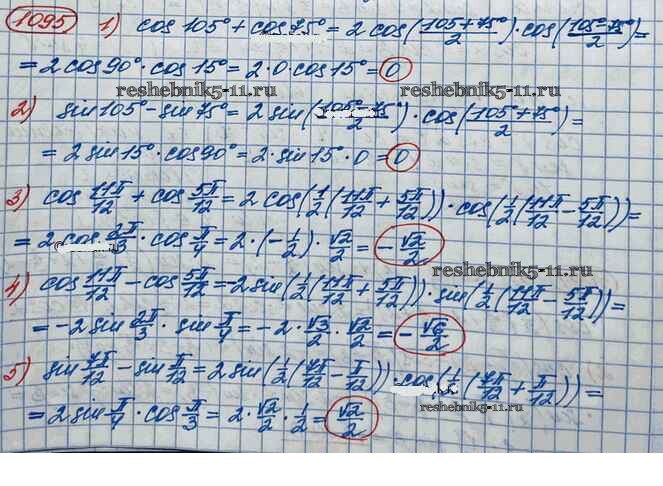 1095 1) cos 105° + cos 75° = 2 cos(105+75°/2) · cos(105°-75°/2) =
= 2 cos 90° · cos 15° = 2 · 0 · cos 15° = 0
reshebnik5-11.ru reshebnik5-11.ru
2) sin 105° - sin 75° = 2 sin(105°-75°/2) · cos(105°+75°/2) =
= 2 sin 15° · cos 90° = 2 · sin 15° · 0 = 0
3) cos 11π/12 + cos 5π/12 = 2 cos(1/2(11π/12 + 5π/12)) · cos(1/2(11π/12 - 5π/12)) =
= 2 cos 2π/3 · cos π/4 = 2 · (-1/2) · √2/2 = -√2/2
reshebnik5-11.ru
4) cos 11π/12 - cos 5π/12 = -2 sin(1/2(11π/12 + 5π/12)) · sin(1/2(11π/12 - 5π/12)) =
= -2 sin 2π/3 · sin π/4 = -2 · √3/2 · √2/2 = -√6/2
5) sin 7π/12 - sin π/12 = 2 sin(1/2(7π/12 - π/12)) · cos(1/2(7π/12 + π/12)) =
= 2 sin π/4 · cos π/3 = 2 · √2/2 · 1/2 = √2/2
reshebnik5-11.ru